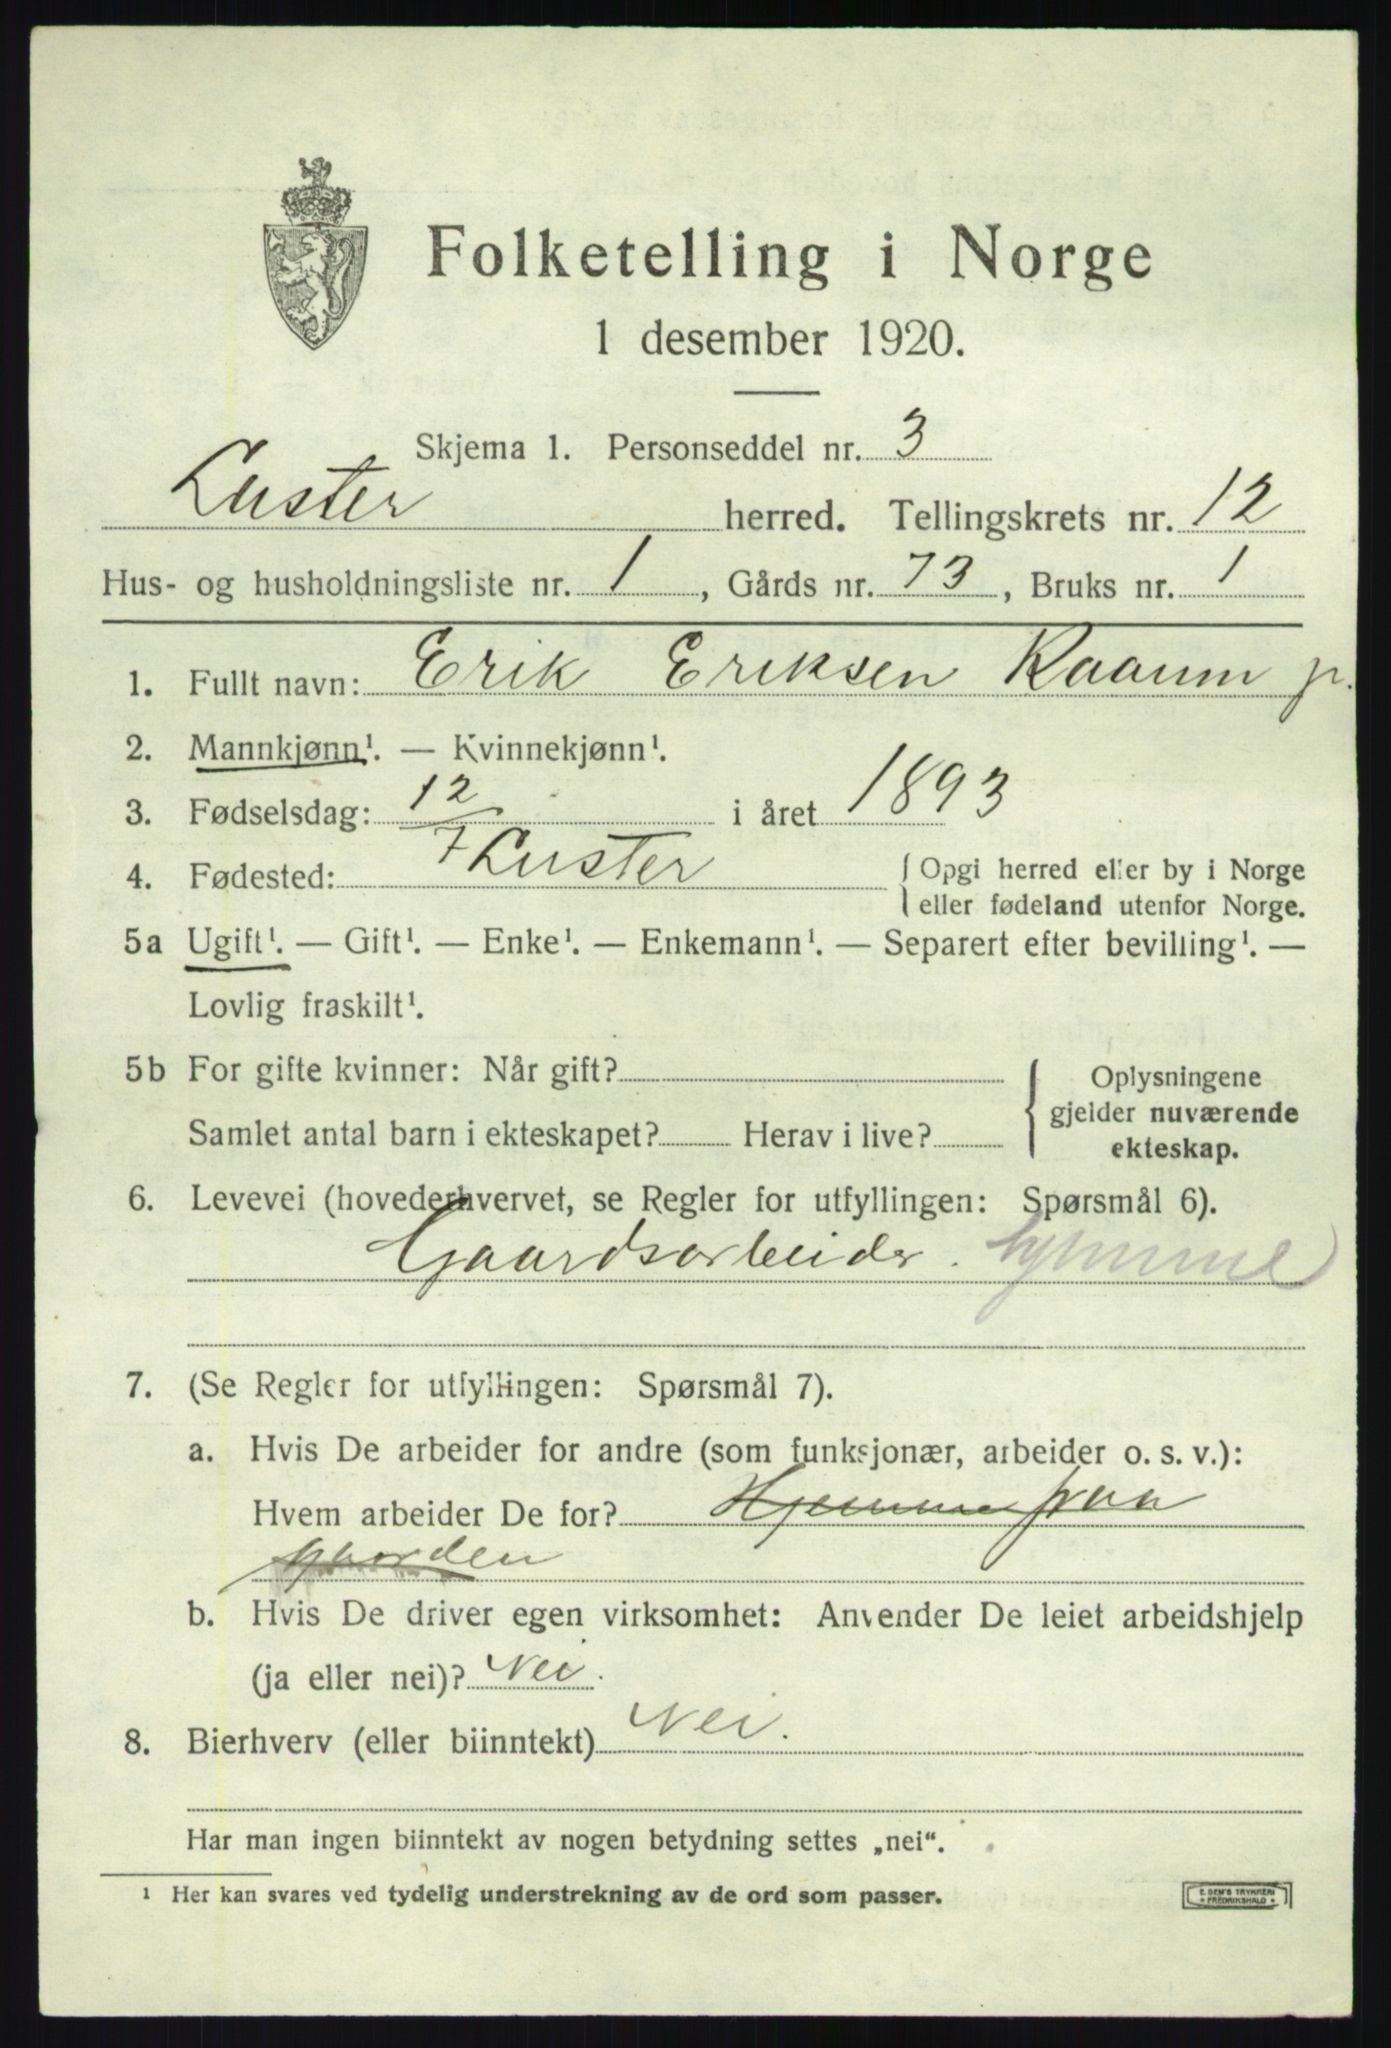 Folketelling i Norge
1 desember 1920.
Skjema 1. Personseddel nr. 3
Luster herred. Tellingskrets nr. 12
Hus- og husholdningsliste nr. 1, Gårds nr. 73, Bruks nr. 1
1. Fullt navn: Erik Eriksen Raaum jr.
2. Mannkjønn¹. — Kvinnekjønn¹.
3. Fødselsdag: 12/7 i året 1893
4. Fødested: Luster { Opgi herred eller by i Norge
eller fødeland utenfor Norge.
5a Ugift¹. — Gift¹. — Enke¹. — Enkemann¹. — Separert efter bevilling¹. —
Lovlig fraskilt¹.
5b For gifte kvinner: Når gift? { Oplysningene
gjelder nuværende
Samlet antal barn i ekteskapet? Herav i live?
ekteskap.
6. Levevei (hovederhvervet, se Regler for utfyllingen: Spørsmål 6).
Gaardsarbeider. hjemme
7. (Se Regler for utfyllingen: Spørsmål 7).
a. Hvis De arbeider for andre (som funksjonær, arbeider o. s. v.):
Hvem arbeider De for? Hjemme paa
gaarden
b. Hvis De driver egen virksomhet: Anvender De leiet arbeidshjelp
(ja eller nei)? Nei.
8. Bierhverv (eller biinntekt) Nei.
Har man ingen biinntekt av nogen betydning settes „nei“.
¹ Her kan svares ved tydelig understrekning av de ord som passer.
E. SEM'S TRYKKERI
FREDRIKSHALD